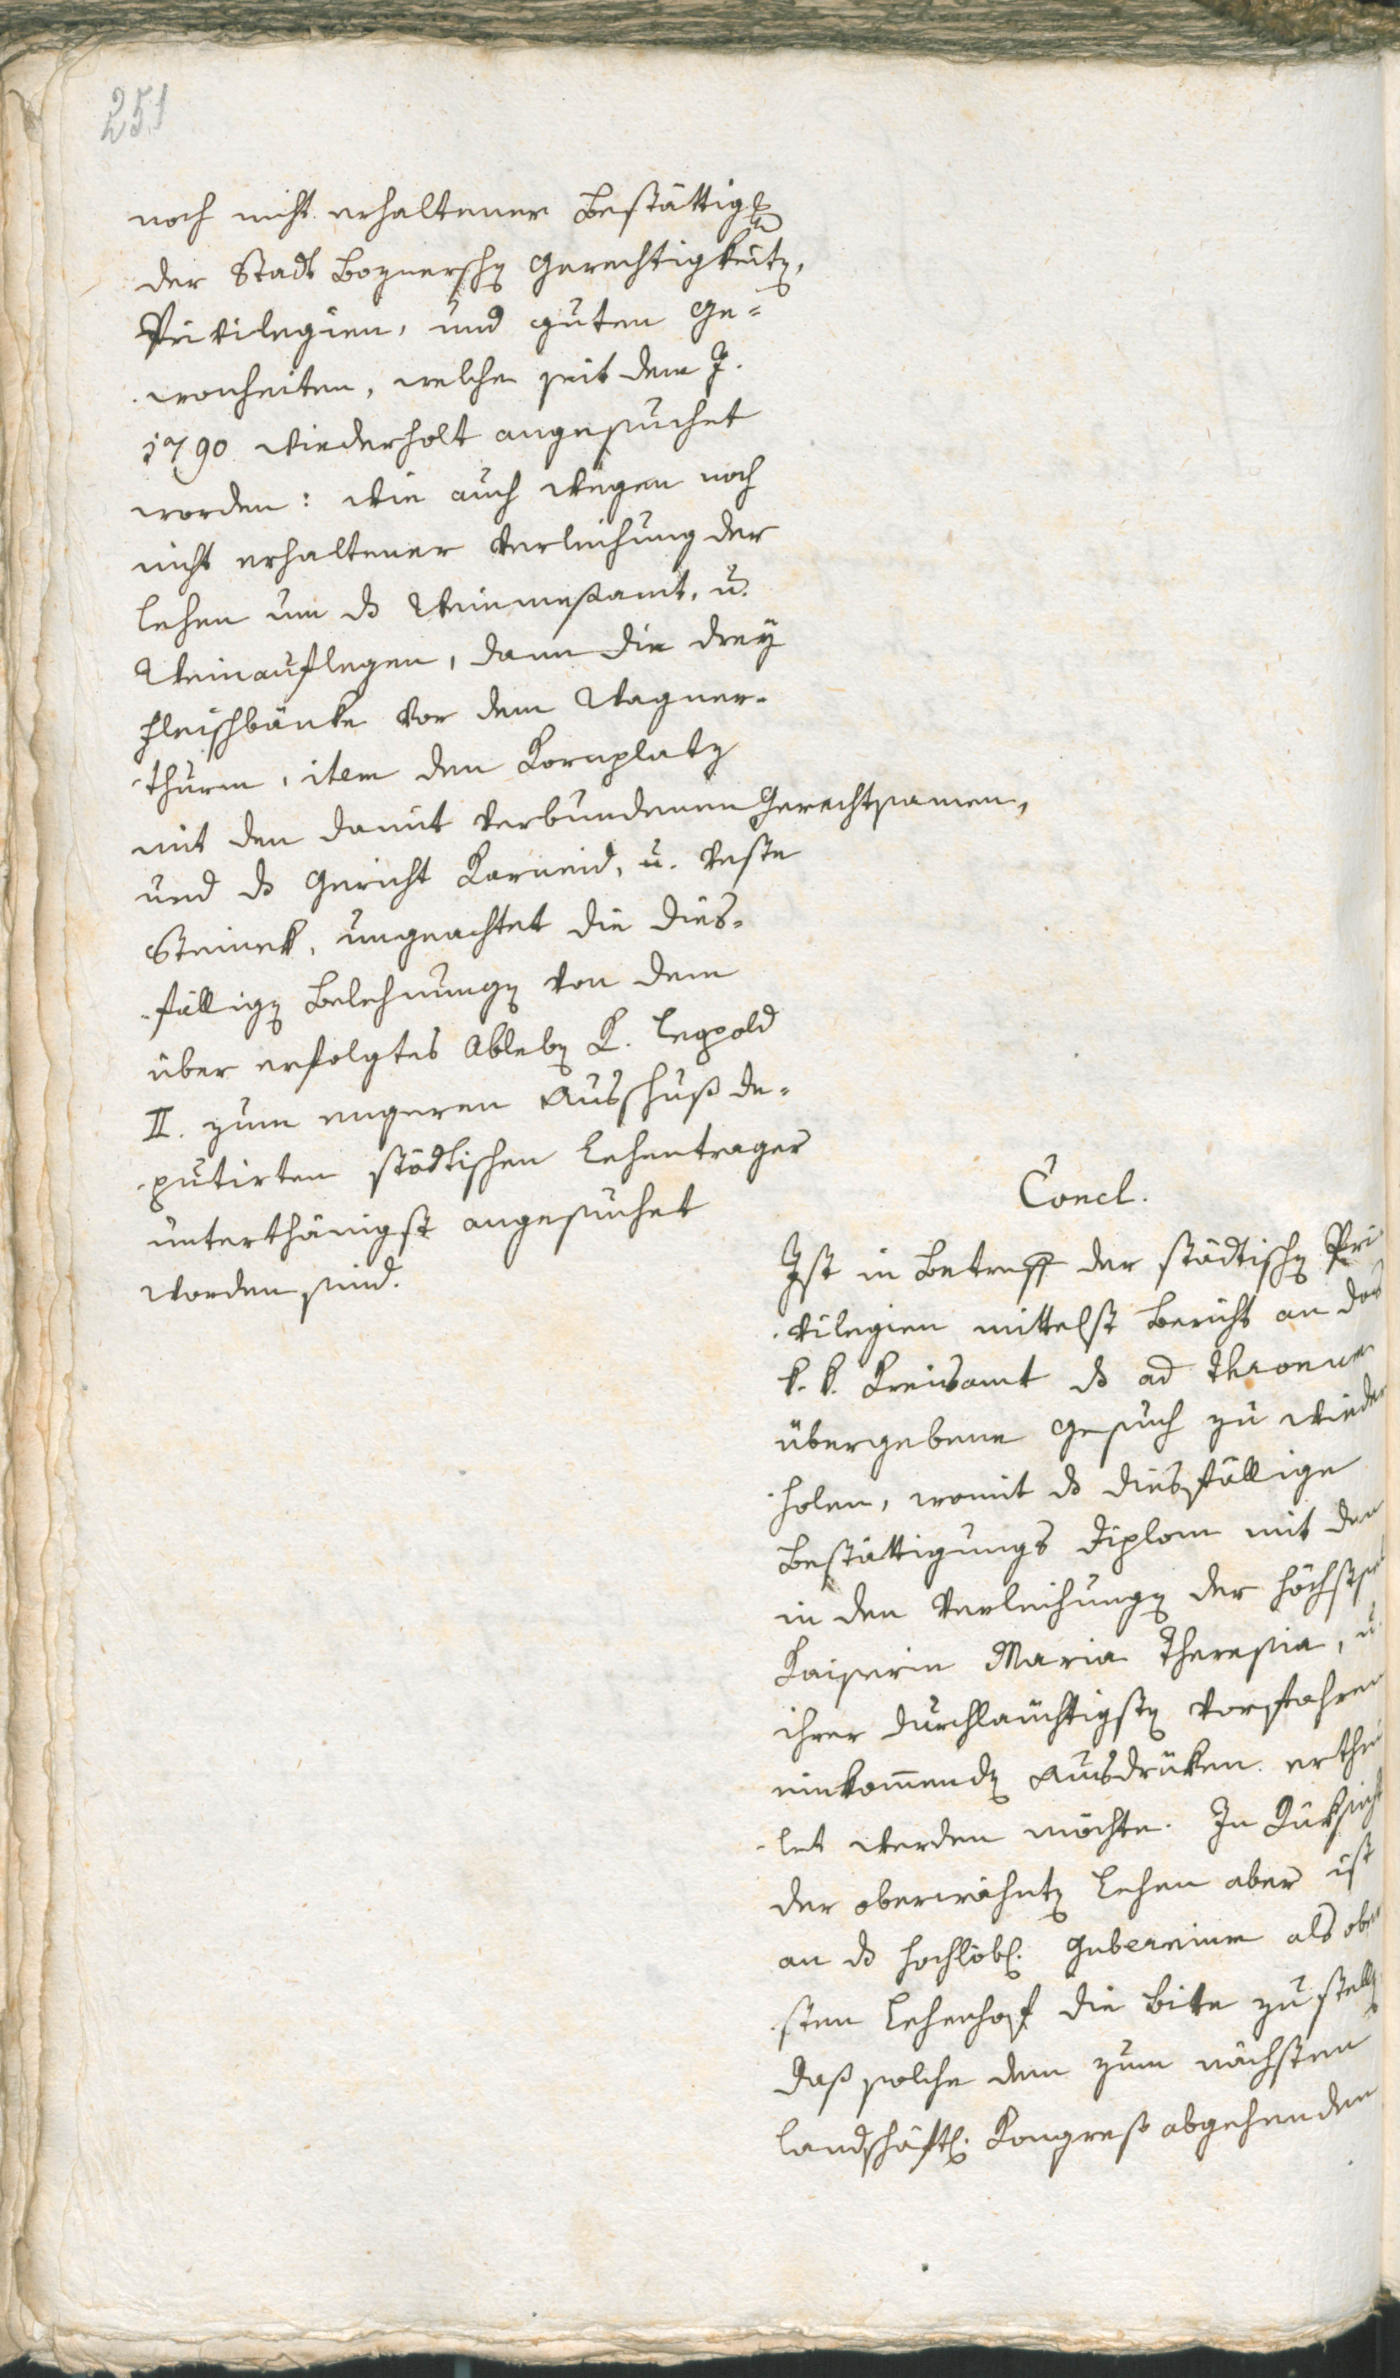 251
noch nicht erhaltener Bestättigg
der Stadt Boznerschen Gerechtigkeiten,
Privilegien, und guten Ge=
wonheiten, welche seit dem J.
1790 wiederholt angesuchet
worden: wie auch wegen noch
nicht erhaltener Verleihung der
Lehen um ds Weinmeßamt, u.
Weinauflegen, dann die drey
Fleischbänke vor dem Wagner=
thurm, item den Kornplatz
mit den damit verbundenen Gerechtsamen,
und ds Gericht Karneid, u. Veste
Steinek, ungeachtet die dies=
fälligen Belehnungen von dem
über erfolgtes Ableben K. Leopold
II. zum engeren Ausschuß de=
putirten städtischen Lehentrager
unterthänigst angesuchet
worden sind.
Concl.
Ist in Betreff der städtischen Pri
vilegien mittelst Bericht an das
k. k. Kreisamt ds ad Thronum
übergebene Gesuch zu wieder
holen, womit ds diesfällige
Bestättigungs Diplom mit den
in den Verleihungen der höchstsel
Kaiserin Maria Theresia, u.
ihrer durchlauchtigsten Vorfahren
einkommenden Ausdrüken erthei
let werden möchte. In Rüksicht
der oberwähnten Lehen aber ist
an ds hochlöbl. Gubernium als ober
sten Lehenhof die Bitte zu stellen
daß solche dem zum nächsten
landschäftl. Kongreß abgehenden